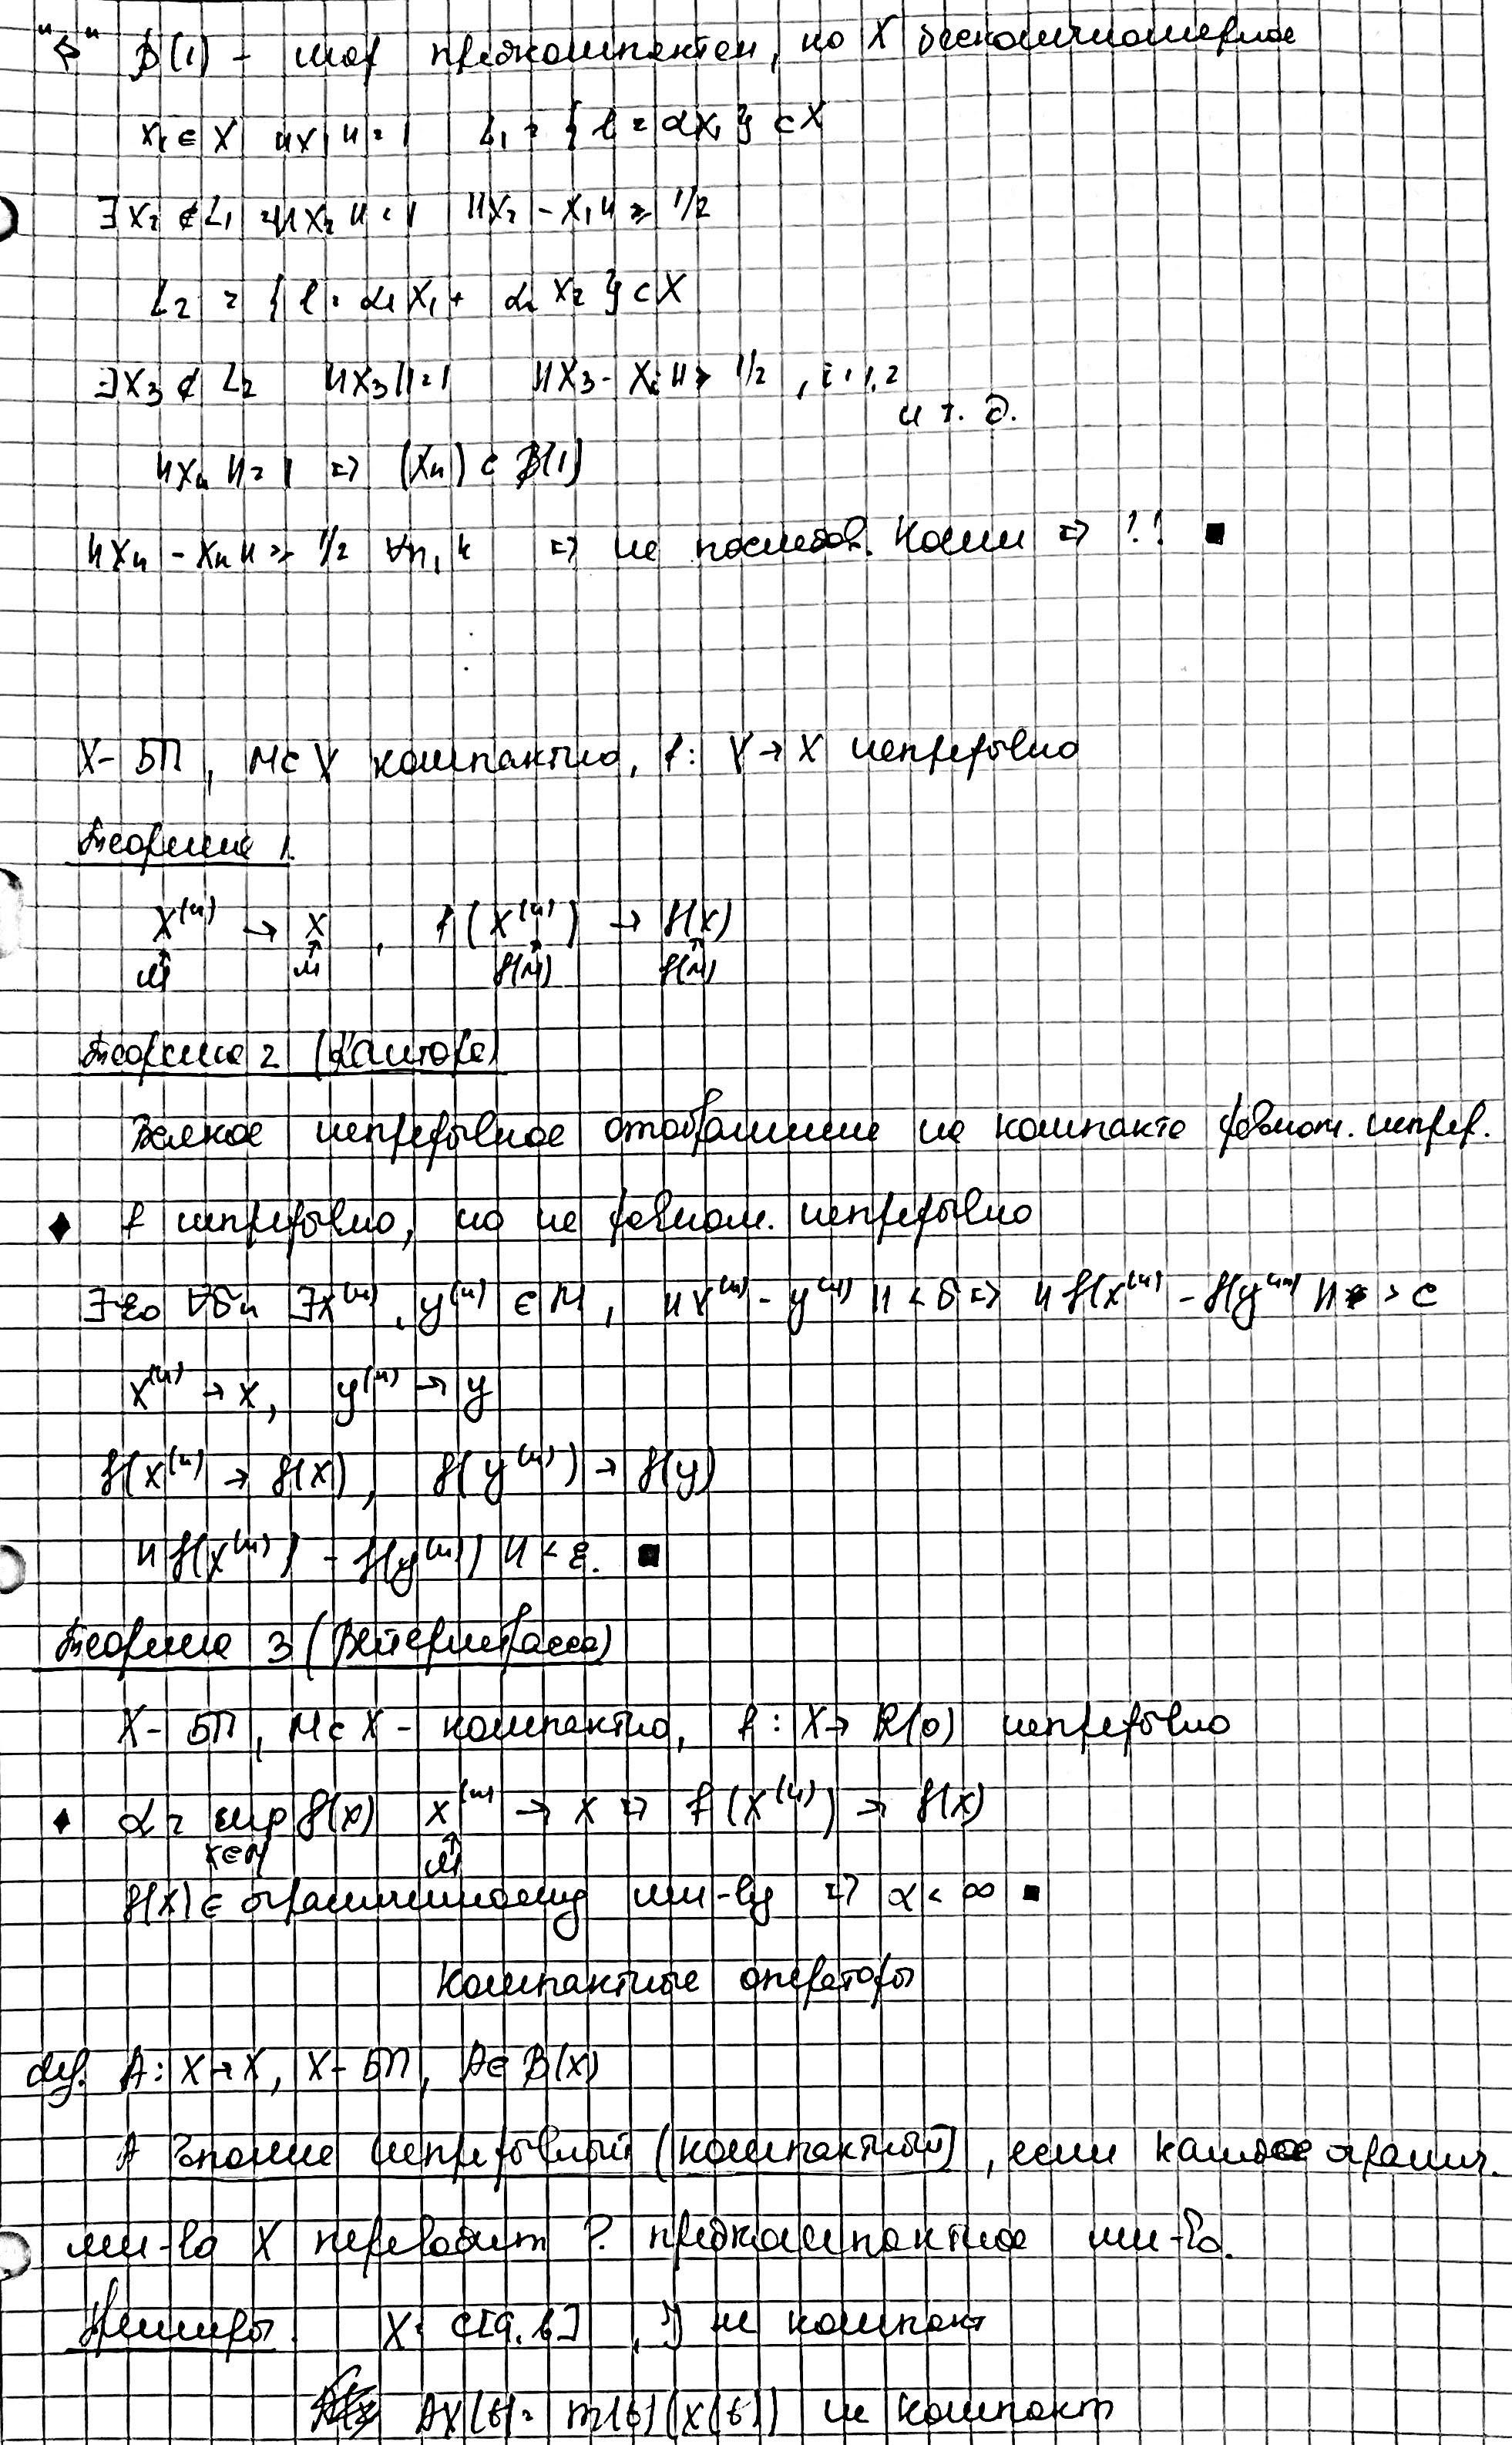 "⇐" B(1) - шар предкомпактен, но X бесконечномерное
x₁ ∈ X ||x₁|| = 1 L₁ = { l = αx₁ } ⊂ X
∃x₂ ∉ L₁ ||x₂|| = 1 ||x₂ - x₁|| ≥ 1/2
L₂ = { l = α₁x₁ + α₂x₂ } ⊂ X
∃x₃ ∉ L₂ ||x₃|| = 1 ||x₃ - xᵢ|| ≥ 1/2, i = 1,2
и т. д.
||xₙ|| = 1 ⇒ (xₙ) ⊂ B(1)
||xₙ - xₖ|| ≥ 1/2 ∀n, k ⇒ не последов. Коши ⇒ !! ■
X - БП, M ⊂ X компактно, f: X → X непрерывно
Теорема 1.
x⁽ⁿ⁾ → x, f(x⁽ⁿ⁾) → f(x)
M M f(M) f(M)
Теорема 2 (Кантора)
Всякое непрерывное отображение на компакте равном. непрер.
♦ f непрерывно, но не равном. непрерывно
∃ε₀ ∀δₙ ∃x⁽ⁿ⁾, y⁽ⁿ⁾ ∈ M, ||x⁽ⁿ⁾ - y⁽ⁿ⁾|| < δ ⇒ ||f(x⁽ⁿ⁾ - f(y⁽ⁿ⁾|| > ε
x⁽ⁿ⁾ → x, y⁽ⁿ⁾ → y
f(x⁽ⁿ⁾ → f(x), f(y⁽ⁿ⁾) → f(y)
||f(x⁽ⁿ⁾) - f(y⁽ⁿ⁾)|| < ε. ■
Теорема 3 (Вейерштрасса)
X - БП, M ⊂ X - компактно, f: X → R(0) непрерывно
♦ α = sup f(x) x⁽ⁿ⁾ → x ⇒ f(x⁽ⁿ⁾) → f(x)
x∈M M
f(x) ∈ ограниченному мн-ву ⇒ α < ∞ ■
Компактные операторы
def. A: X → X, X - БП, A ∈ B(X)
A вполне непрерывный (компактный), если каждое огранич.
мн-во X переводит в предкомпактное мн-во.
Примеры. X = C[a, b], J не компакт
Ax(t) = m(t)(x(t)) не компакт